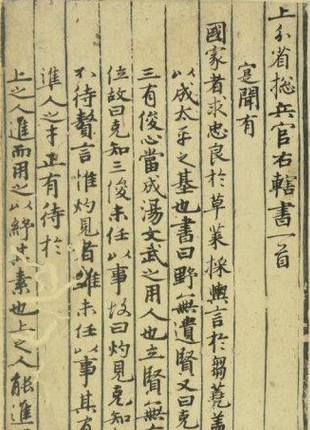 上分省緫兵官右轄書一首
寔聞有
國家者求忠良於草莱採輿言於芻蕘盖
以成太平之基也書曰野無遺賢又曰克
三有俊心當成湯文武之用人也立賢無
位故曰克知三俊未任以事故曰灼見克知
不待贅言惟灼見者雖未任以事其有
進人之才正有待於
上之人進而用之以紓其素也上之人能進